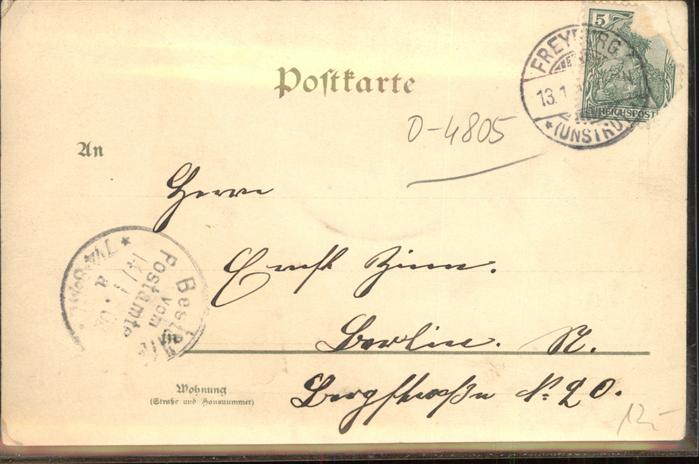 5
FREYBURG
13.1
(UNSTRUT)
REICHSPOST
Postkarte
0-4805
An
Herrn
Ernst Zinn.
Bestellt
vom
Postamte
14/1
in
Berlin. N.
Wohnung
(Straße und Hausnummer)
Bergstraße No 20.
12,-